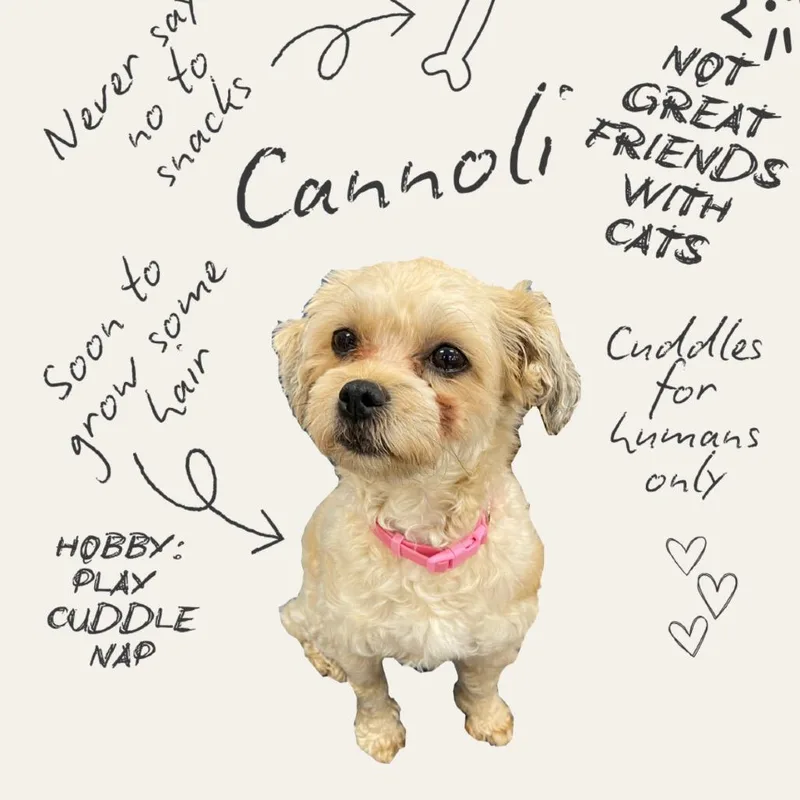 Never say
no to
snacks
NOT
GREAT
FRIENDS
WITH
CATS
Cannoli
Soon to
grow some
hair
Cuddles
for
humans
only
HOBBY:
PLAY
CUDDLE
NAP